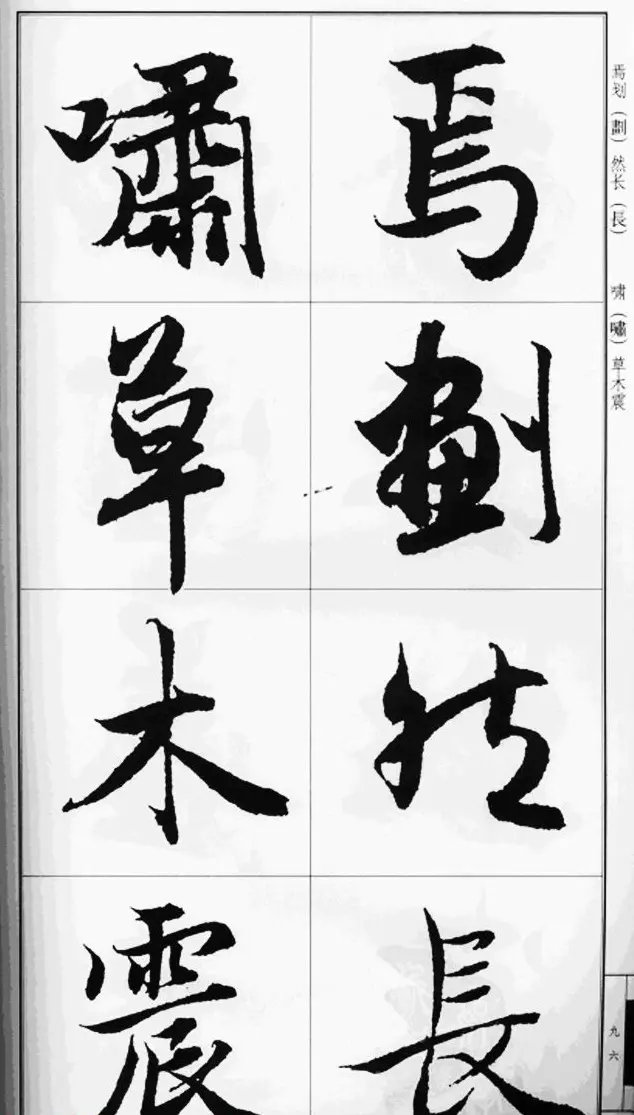 焉劃然長
嘯草木震
焉划（劃）然长（長）　啸（嘯）草木震
九六